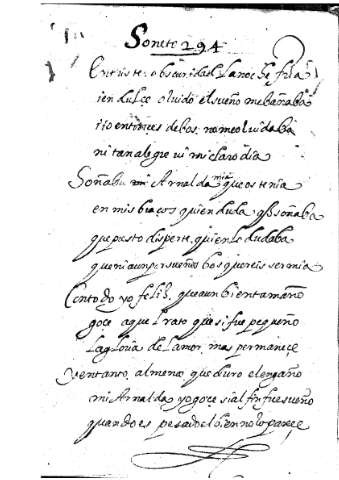 Soneto 294
En triste obscuridad la noche fria
i en dulçe oluido el sueño me bañaba
i io entonçes de bos no me oluidaba
ni tan alegre ui mi claro dia
Soñaba mi Arnalda mia que os tenia
en mis braços quien duda q soñaba
que presto disperte quien lo dudaba
que ni aun por sueños bos quereis ser mia
Con todo yo feliz que aun bien tamaño
goçe aquel rato que si fue pequeño
la gloria de lamor mas permaneçe
y en tanto almeno que duro el engaño
mi Arnalda yo goçe si al fin fue sueño
quando es pesado el bien no lo pareçe